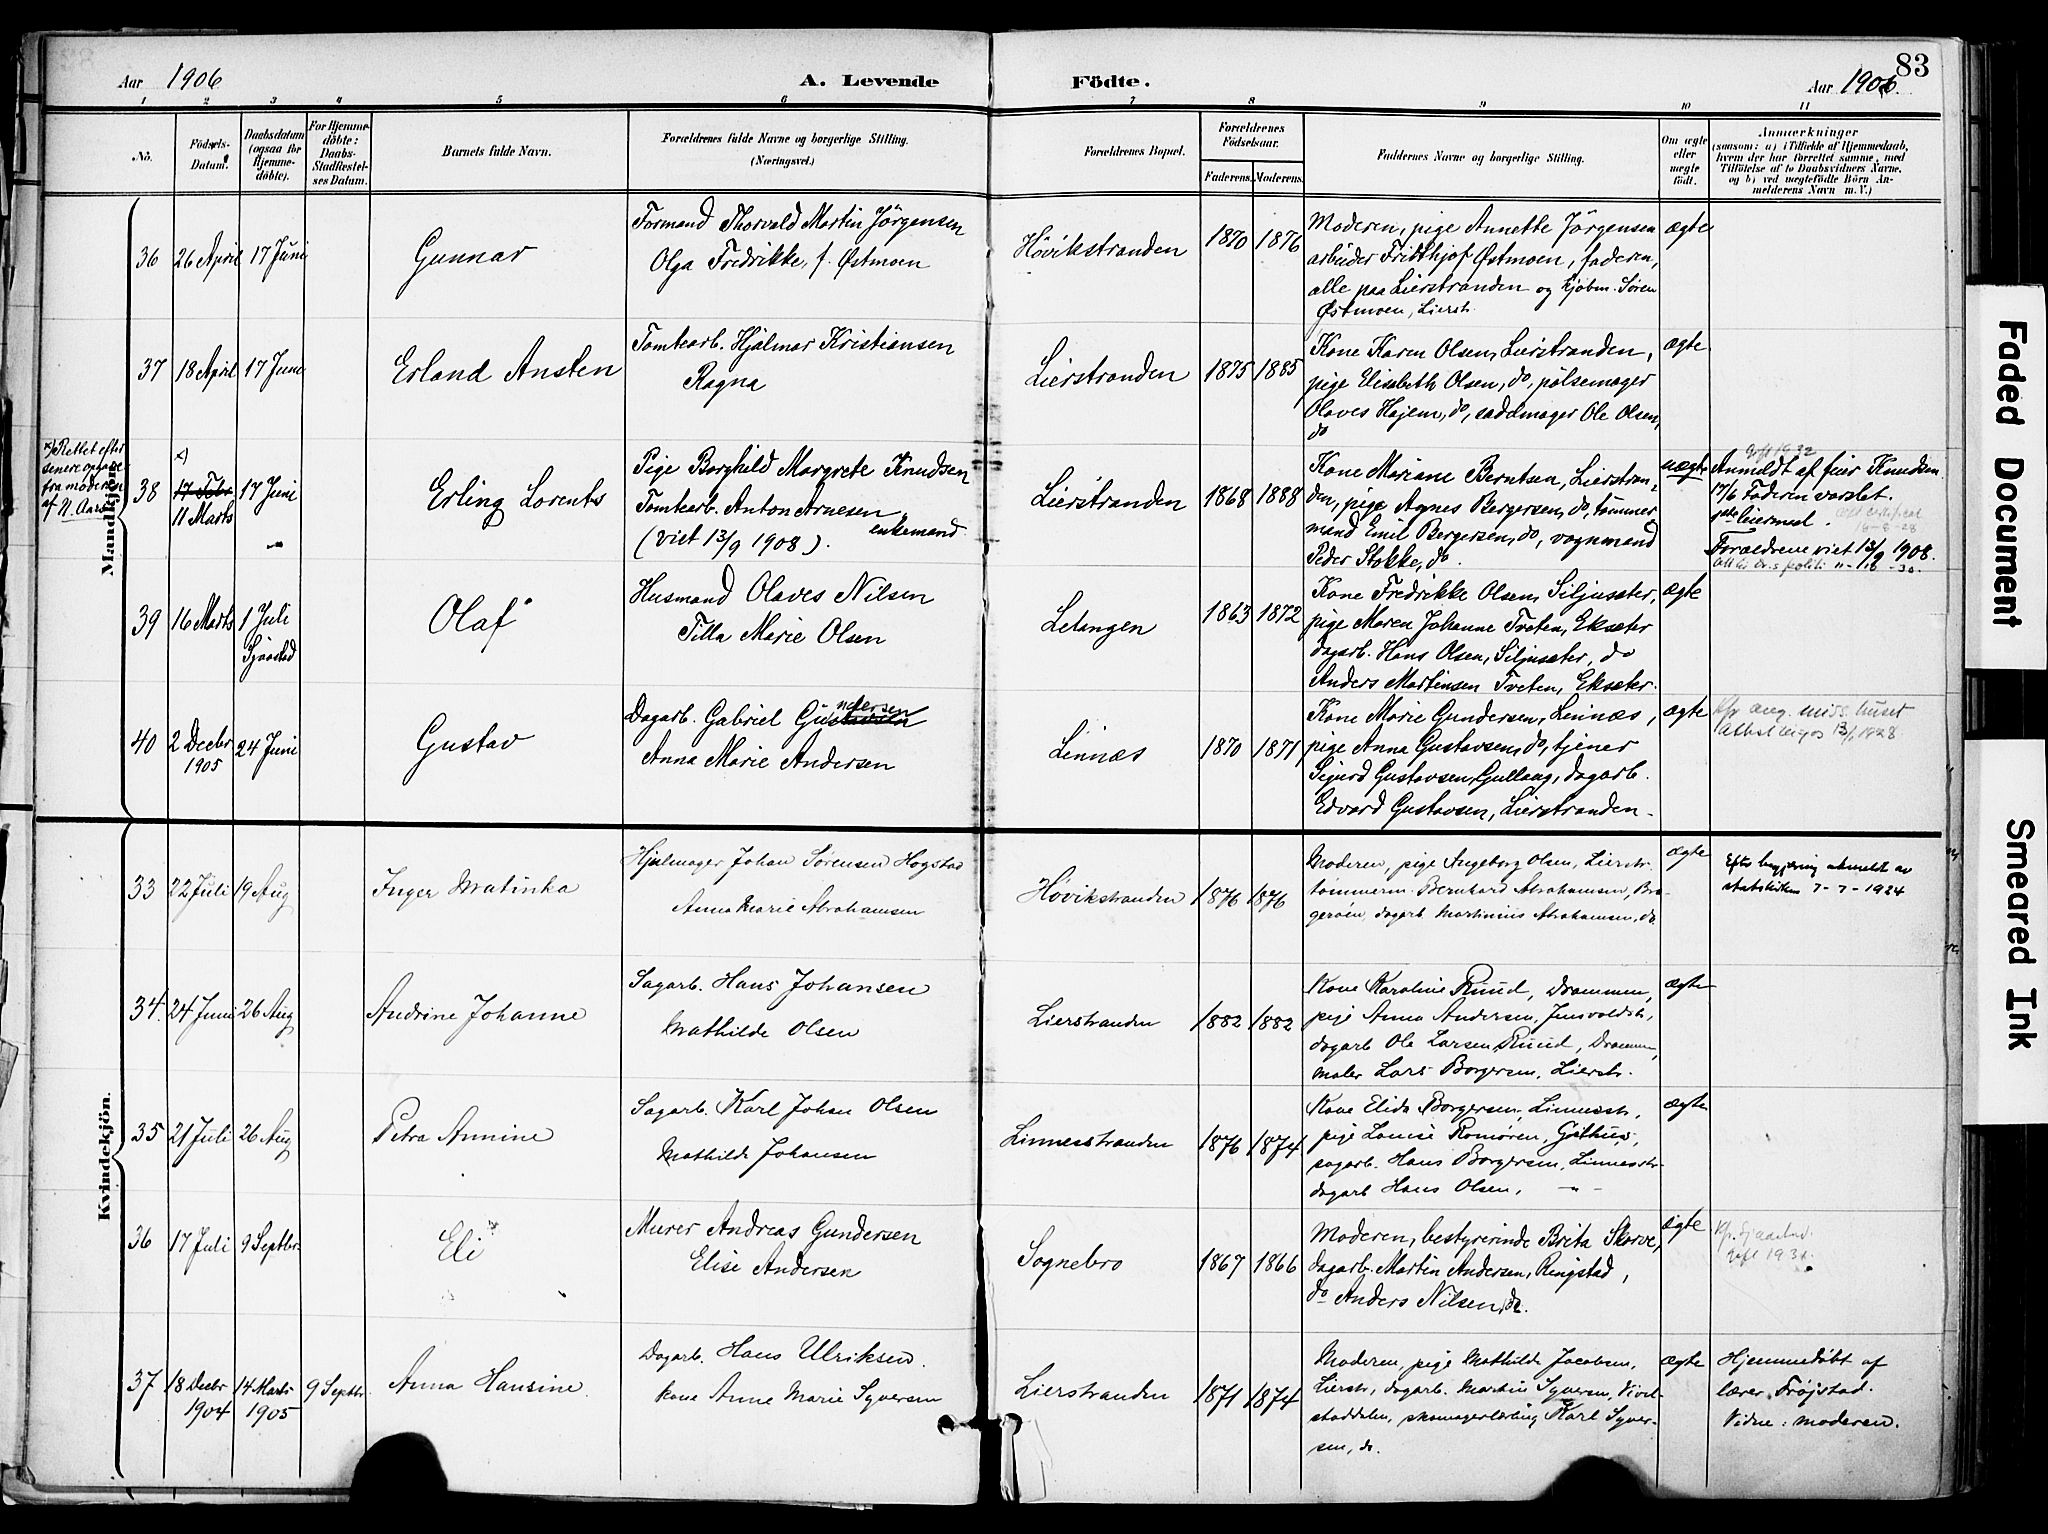 83
Aar 1906
A. Levende
Födte.
Aar 1906.
1 2 3 4 5 6 7 8 9 10 11
No.
Födsels-Datum.
Daabsdatum (ogsaa för Hjemmedöbte).
For Hjemmedöbte: Daabs-Stadfæstelses Datum.
Barnets fulde Navn.
Forældrenes fulde Navne og borgerlige Stilling. (Næringsvei.)
Forældrenes Bopæl.
Forældrenes Födselsaar.
Faderens. Moderens.
Faddernes Navne og borgerlige Stilling.
Om ægte eller uægte født.
Anmærkninger
(saasom: a) i Tilfælde af Hjemmedaab, hvem der har forrettet samme, med Tilföielse af to Daabsvidners Navne, og b) ved uægtefödte Börn Anmelderens Navn m. V.)
Mandkjön.
36 26 April 17 Juni Gunnar
Formand Thorvald Martin Jörgensen
Olga Fredrikke, f. Østmoen
Høvikstranden 1870 1876
Moderen, pige Annette Jörgensen
arbeider Fridthjof Østmoen, faderen,
alle paa Lierstranden og kjøbm. Sören
Østmoen, Lierstr.
ægte
37 18 April 17 Juni Erland Ansten
Tomtearb. Hjalmar Kristiansen
Ragna
Lierstranden 1875 1885
Kone Karen Olsen, Lierstranden,
pige Elisabeth Olsen, do, pölsemager
Olaves Hajem, do, sadelmager Ole Olsen,
do
ægte
x) Rettet efter
senere opgave
fra moderen
af N. Aars
38 x) 17 Febr 11 Marts 17 Juni Erling Lorents
Pige Borghild Margrete Knudsen
Tomtearb. Anton Arnesen, enkemand
(viet 13/9 1908).
Lierstranden 1868 1888
Kone Mariane Berntsen, Lierstran-
den, pige Agnes Bergersen, do, tömmer
mand Emil Bergersen, do, vognmand
Peder Stokke, do.
uægte
Gift 1932
Anmeldt af feier Knudsen
17/6 Faderen varslet.
Forældrene viet 13/9 1908.
39 16 Marts 1 Juli Sjaastad Olaf
Husmand Olaves Nilsen
Tilla Marie Olsen
Letangen 1863 1872
Kone Fredrikke Olsen, Siljusæter,
pige Maren Johanne Tveten, Eksæter
dagarb. Hans Olsen, Siljusæter, do
Anders Martinsen Tveten, Eksæter.
ægte
40 2 Decbr 1905 24 Juni Gustav
Dagarb. Gabriel Gustavsen ndersen
Anna Marie Andersen
Linnæs 1870 1871
Kone Marie Gundersen, Linnæs,
pige Anna Gustavsen, do, tjener
Sigurd Gustavsen, Gullaug, dagarb.
Edvard Gustavsen, Lierstranden.
ægte
Kvindekjön.
33 22 Juli 19 Aug Inger Matinka
Hjulmager Johan Sørensen Hogstad
Anna Marie Abrahamsen
Høvikstranden 1876 1876
Moderen, pige Angeborg Olsen, Lierstr.
tömmerm. Bernhard Abrahamsen, Bra-
gerøen, dagarb Martinius Abrahamsen, do
ægte
Efter begjæring utmeldt av
statskirken 7-7-1924
34. 24 Juni 26 Aug Andrine Johanne
Sagarb. Hans Johansen
Mathilde Olsen
Lierstranden 1882 1882
Kone Karoline Ruud, Drammen,
pige Anna Andersen, Jensvoldstr,
dagarb Ole Larsen Ruud, Drammen,
maler Lars Borgersen, Lierstr.
ægte
35 21 Juli 26 Aug Petra Annine
Sagarb. Karl Johan Olsen
Mathilde Johansen
Linnesstranden 1876 1874
Kone Elida Borgersen, Linnesstr,
pige Louise Romören, Gilhus,
sagarb. Hans Borgersen, Linnesstr.
dagarb Hans Olsen, -"-
ægte
36 17 Juli 9 Septbr. Eli
Murer Andreas Gundersen
Elise Andersen
Sognebro 1867 1866
Moderen, bestyrerinde Brita Skarve,
dagarb. Martin Andersen, Ringstad,
do Anders Nilsen, do.
ægte
37 18 Decbr 1904 14 Marts 1905 9 Septbr. Anna Hansine.
Dagarb. Hans Ulriksen.
Kone Anne Marie Syversen
Lierstranden 1871 1874
Moderen, pige Mathilde Jacobsen,
Lierstr, dagarb. Martin Syversen,
skomagerlærling Karl Syver-
sen, do.
ægte
Hjemmedøbt af
lærer Frøjstad.
Vidne: moderen.
Faded Document
Smeared Ink